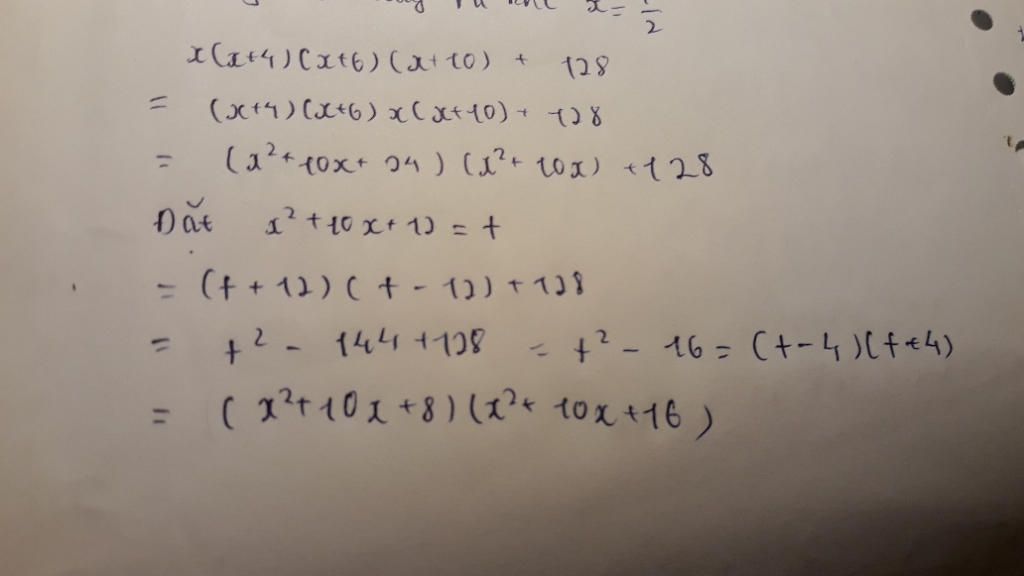 x = 1/2
x(x+4)(x+6)(x+10) + 128
= (x+4)(x+6)x(x+10) + 128
= (x²+10x+24)(x²+10x) + 128
Đặt x²+10x+12 = t
= (t+12)(t-12)+128
= t² - 144+128 = t² - 16 = (t-4)(t+4)
= (x²+10x+8)(x²+10x+16)